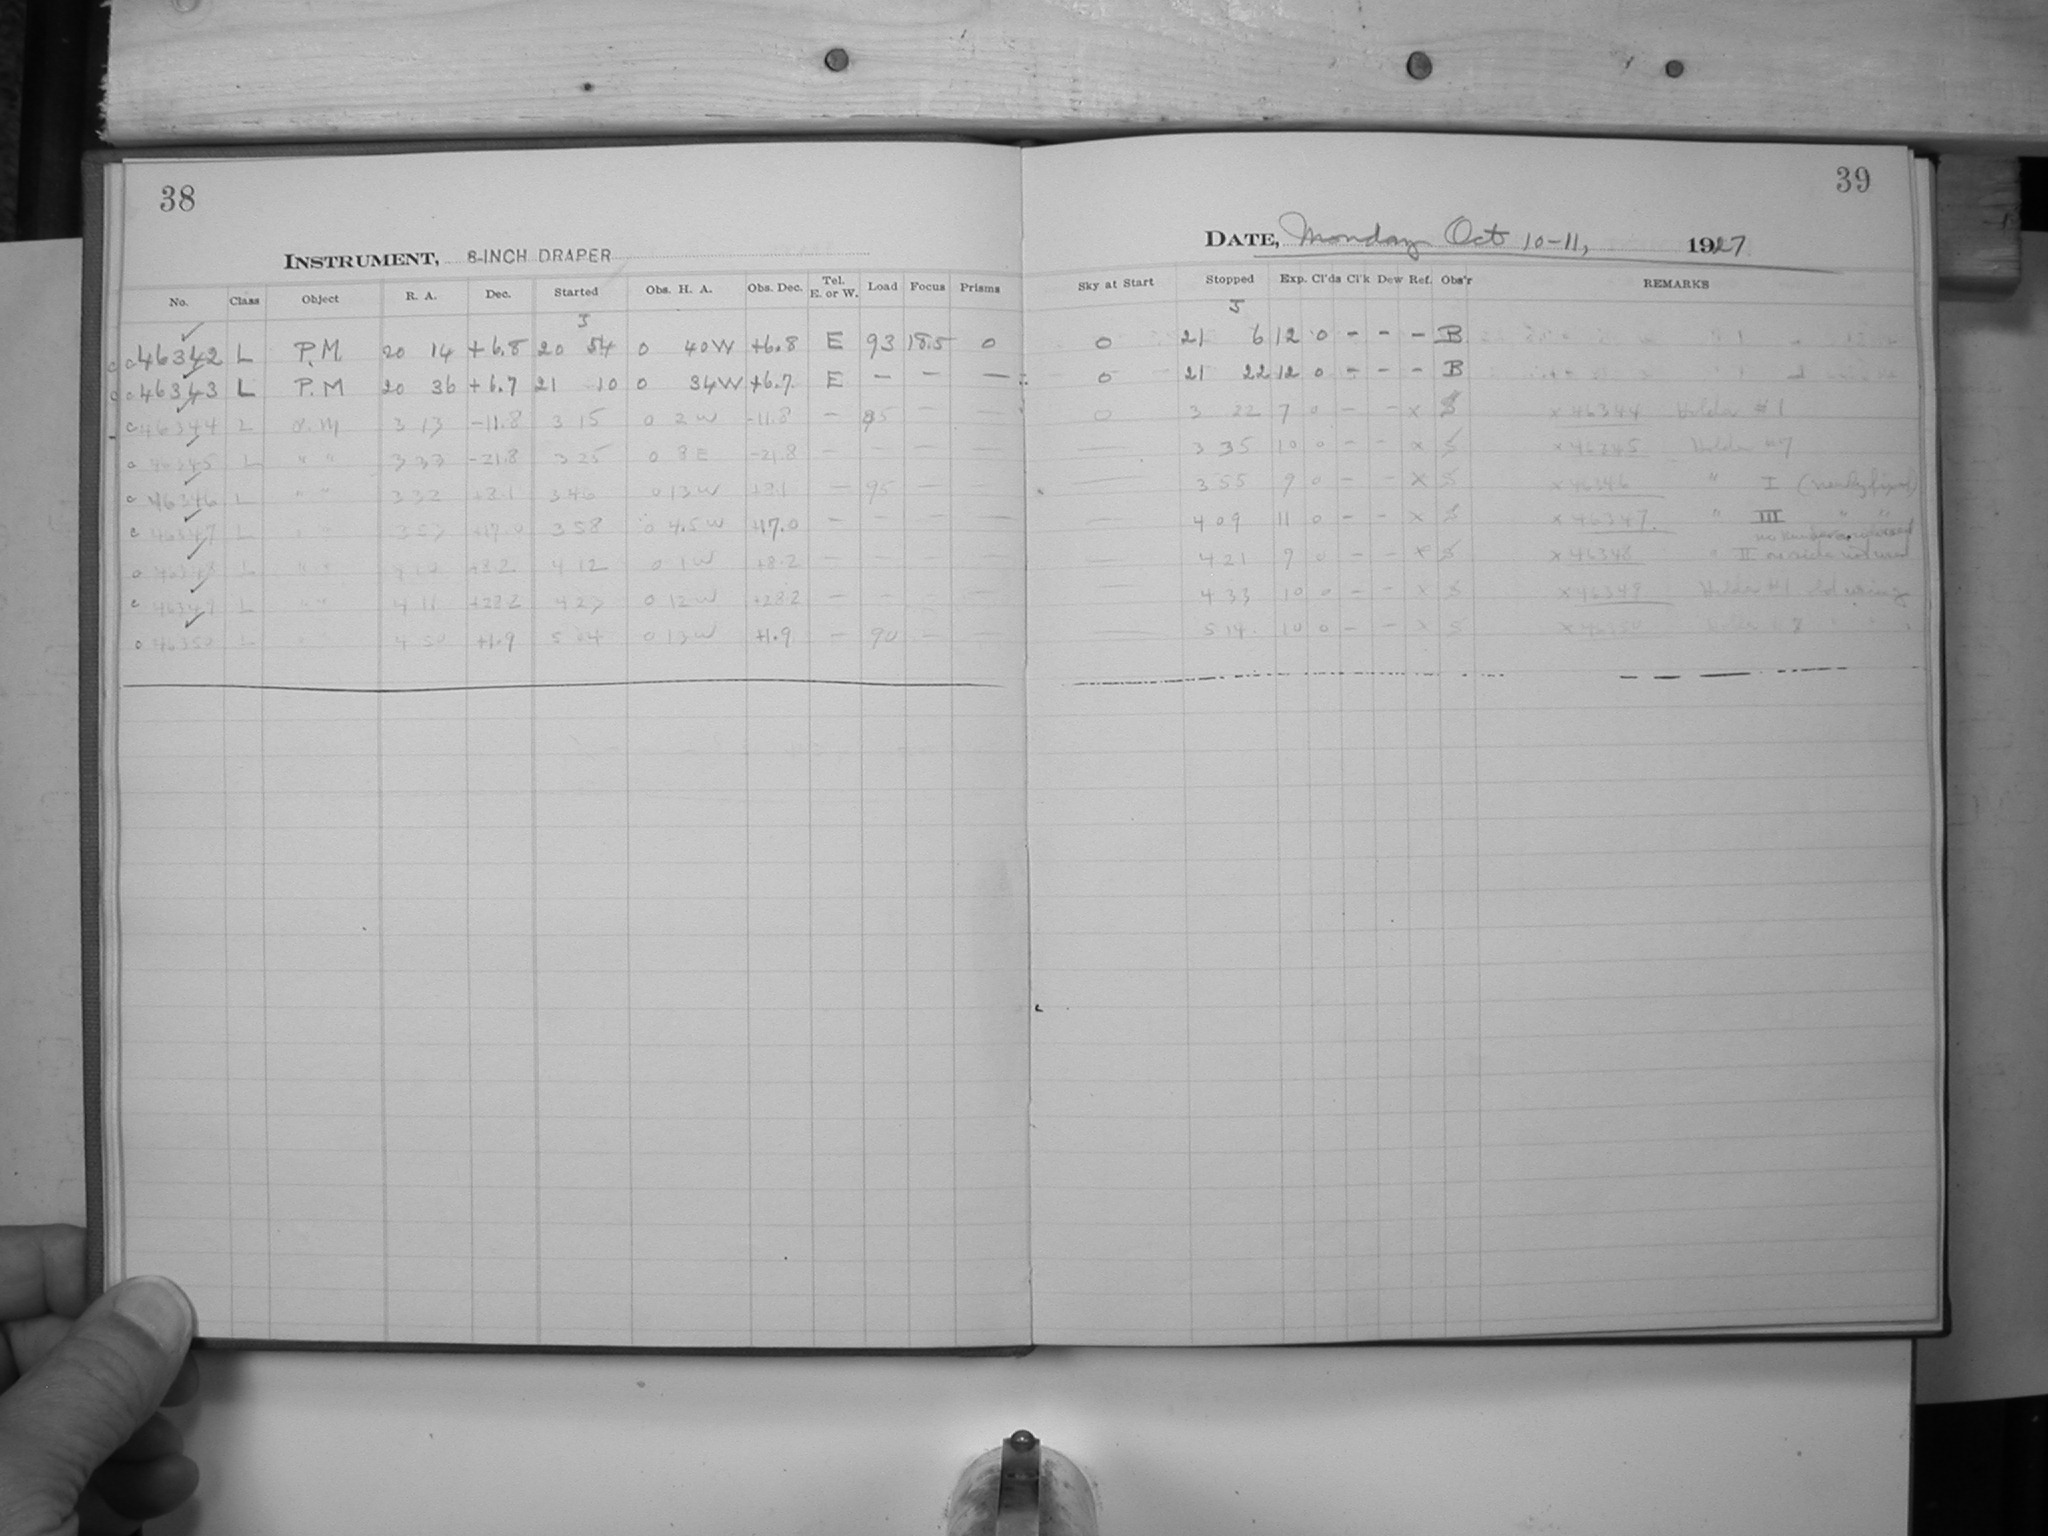 38
INSTRUMENT, 8-INCH DRAPER
No. Class Object R. A. Dec. Started Obs. H. A. Obs. Dec. Tel. E. or W. Load Focus Prisms
c 46342 L P.M. 20 14 +6.8 20 54 0 40W +6.8 E 93 18.5 0
c 46343 L P.M 20 36 +6.7 21 10 0 34W +6.7 E — — —
c 46344 L P.M 3 13 -11.8 3 15 0 2 W -11.8 — 95 — —
c 46345 L " " 3 33 -21.8 3 25 0 8 E -21.8 — — — —
c 46346 L " " 3 32 +8.1 3 46 0 13 W +8.1 — 95 — —
c 46347 L " " +17.0 3 58 0 4.5 W +17.0 — — — —
c 46348 L " " +8.2 4 12 0 1 W +8.2 — — — —
c 46349 L " " 4 11 +28.2 4 23 0 12 W +28.2 — — — —
c 46350 L 4 50 +1.9 5 04 0 13 W +1.9 — 90 — —
39
DATE, Monday Oct 10-11, 1927
Sky at Start Stopped Exp. Cl'ds Cl'k Dew Ref. Obs'r REMARKS
0 21 6 12 0 – – – B
0 21 22 12 0 – – – B
0 3 22 7 0 – – x S x 46344 Holder #1
— 3 35 10 0 – – x S x 46345 Holder #7
— 3 55 9 0 – – x S x 46346 " I
— 4 09 11 0 – – x S x 46347 " III " "
— 4 21 9 0 – – x S x 46348 " II
— 4 33 10 0 – – x S x 46349 Holder #1 old
— 5 14 10 0 – – x S x 46350